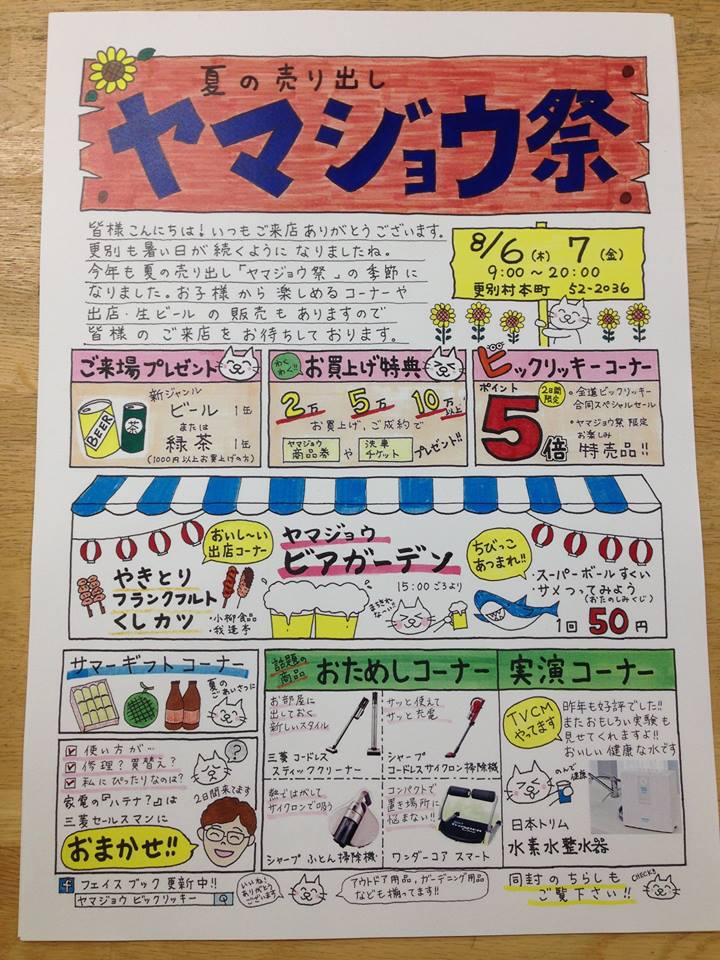 夏の売り出し
ヤマジョウ祭
皆様こんにちは!いつもご来店ありがとうございます。
更別も暑い日が続くようになりましたね。
今年も夏の売り出し「ヤマジョウ祭」の季節に
なりました。お子様から楽しめるコーナーや
出店・生ビールの販売もありますので
皆様のご来店をお待ちしております。
8/6(木) 7(金)
9:00〜20:00
更別村本町 52-2036
ご来場プレゼント
新ジャンル
ビール 1缶
または
緑茶 1缶
(1000円以上お買上げの方)
BEER
茶
わくわく!!
お買上げ特典
2万 5万 10万以上
お買上げ、ご成約で
ヤマジョウ商品券 や 洗車チケット プレゼント!!
ビックリッキーコーナー
ポイント
5倍
2日間限定
・全道ビックリッキー
合同スペシャルセール
・ヤマジョウ祭 限定
お楽しみ
特売品!!
おいし〜い
出店コーナー
やきとり
フランクフルト
くしカツ
・小柳食品
・我逢亭
ヤマジョウ
ビアガーデン
15:00ごろより
まちきれな〜い!!
ちびっこ
あつまれ!!
・スーパーボールすくい
・サメつってみよう
(おたのしみくじ)
1回 50円
サマーギフトコーナー
夏のごあいさつに
使い方が…
修理?買替え?
私にぴったりなのは?
?
2日間来てます
家電の『ハテナ?』は
三菱セールスマンに
おまかせ!!
話題の商品
おためしコーナー
お部屋に
出しておく
新しいスタイル
三菱コードレス
スティッククリーナー
サッと使えて
サッと充電
シャープ
コードレスサイクロン掃除機
熱ではがして
サイクロンで吸う
シャープ ふとん掃除機
コンパクトで
置き場所に
悩まない!!
ワンダーコア スマート
実演コーナー
TVCM
やってます
昨年も好評でした!!
またおもしろい実験も
見せてくれますよ!!
おいしい健康な水です
のんで健康
日本トリム
水素水整水器
f フェイスブック 更新中!!
ヤマジョウ ビックリッキー
いいね!
ありがとう
ございます
アウトドア用品、ガーデニング用品
なども揃ってます!!
同封のちらしも
ご覧下さい!!
CHECK!!